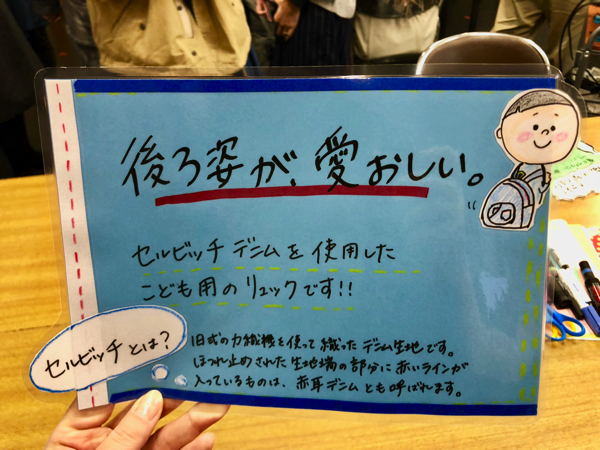 後ろ姿が、愛おしい。
セルビッチデニムを使用した
こども用のリュックです!!
セルビッチとは?
旧式の力織機を使って織ったデニム生地です。
ほつれ止めされた生地端の部分に赤いラインが
入っているものは、赤耳デニムとも呼ばれます。